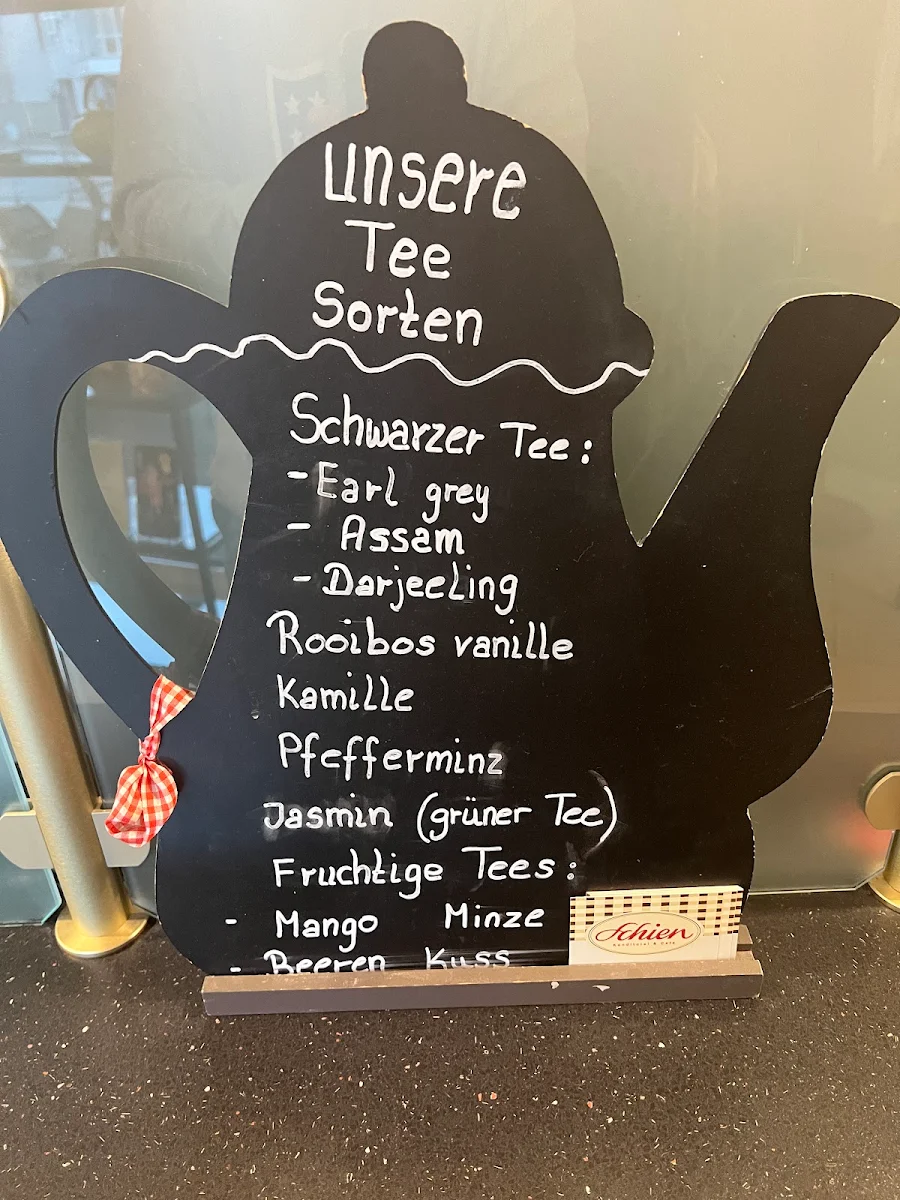 unsere
Tee
Sorten
Schwarzer Tee:
- Earl grey
- Assam
- Darjeeling
Rooibos vanille
Kamille
Pfefferminz
Jasmin (grüner Tee)
Fruchtige Tees:
- Mango Minze
- Beeren Kuss
Schien
Konditorei & Café